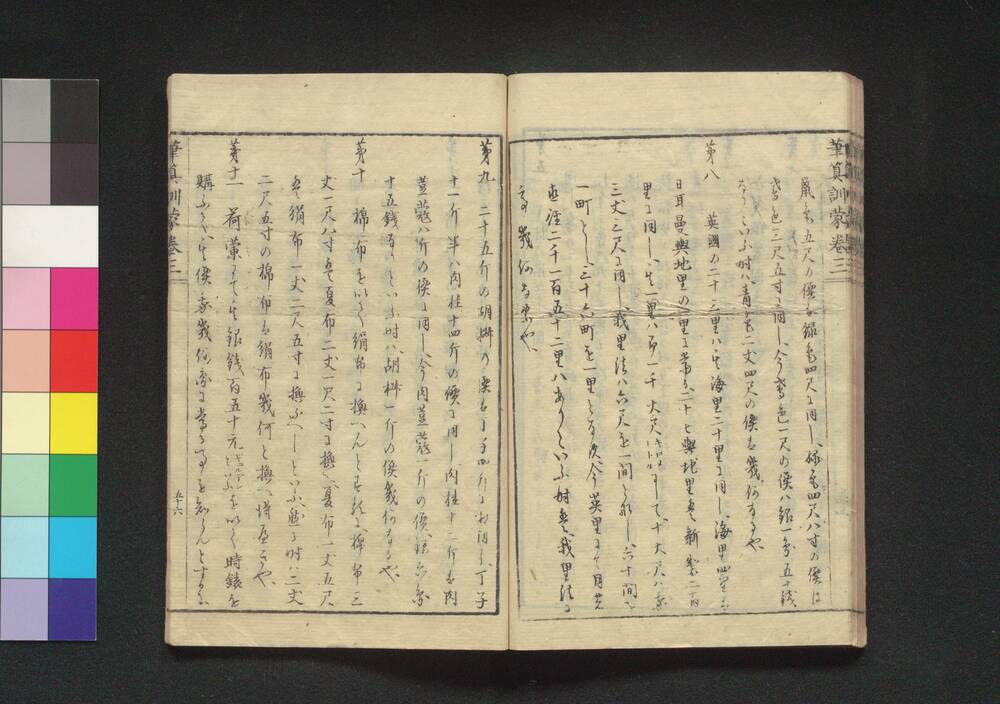 筆算訓蒙巻三
鼠色五尺の價は緑色四尺に同し、緑色四尺八寸の價は
鳶色三尺五寸に同し、今鳶色一尺の價ハ銀一匁五十錢
なりといふ時ハ、青色二丈四尺の價は幾何なるや、
第八 英國の二十三里ハ海里二十里に同し、海里四里は
日耳曼輿地里の一里に當る二十七輿地里は新製二百
里に同し、一里ハ一千大尺にして十大尺ハ
三丈三尺に同し我里法ハ六尺を一間とし、六十間を
一町とし、三十六町を一里とする今英里にて月世
直徑二千一百五十二里ハありといふ時は我里法に
て幾何なるや、
第九 二十五斤の胡椒の價は丁子四斤に同し、丁子
十一斤半ハ肉桂十四斤の價に同し肉桂十二斤は肉
荳蔲八斤の價に同し、今肉荳蔲一斤の價銀六匁
十五錢なりといふ時ハ胡椒一斤の價幾何なるや、
第十 棉布を以て絹布に換へんとするに、棉布三
丈一尺八寸は夏布二丈一尺二寸に換へ夏布一丈五尺
は絹布一丈二尺五寸に換ふへしといふ、然る時ハ二丈
二尺五寸の棉布は絹布幾何と換へ得へきや、
第十一 荷蘭にて銀錢百五十元を以て時錶を
購ふ其價我幾何に當る事を知らんとする
五十六
筆算訓蒙巻三